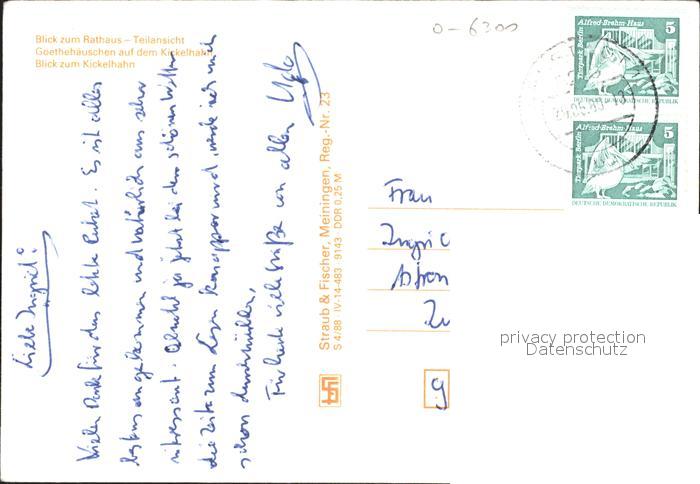 Blick zum Rathaus – Teilansicht
Goethehäuschen auf dem Kickelhahn
Blick zum Kickelhahn
O-6300
Alfred-Brehm-Haus
Tierpark Berlin
5
DEUTSCHE DEMOKRATISCHE REPUBLIK
Alfred-Brehm-Haus
Tierpark Berlin
5
DEUTSCHE DEMOKRATISCHE REPUBLIK
Liebe Ingrid!
Vielen Dank für das letzte Paket. Es ist alles
bestens angekommen und natürlich aus sehr
interessant. Obwohl ja jetzt bei dem schönen Wetter
die Zeit zum Lesen knapper wird, werde ich mich
schon durchwühlen.
Für heute viele Grüße von allen
Straub & Fischer, Meiningen, Reg.-Nr. 23
S 4/88 IV-14-483 9143 DDR 0,25 M
Frau
Ingrid
Zw
9
privacy protection
Datenschutz